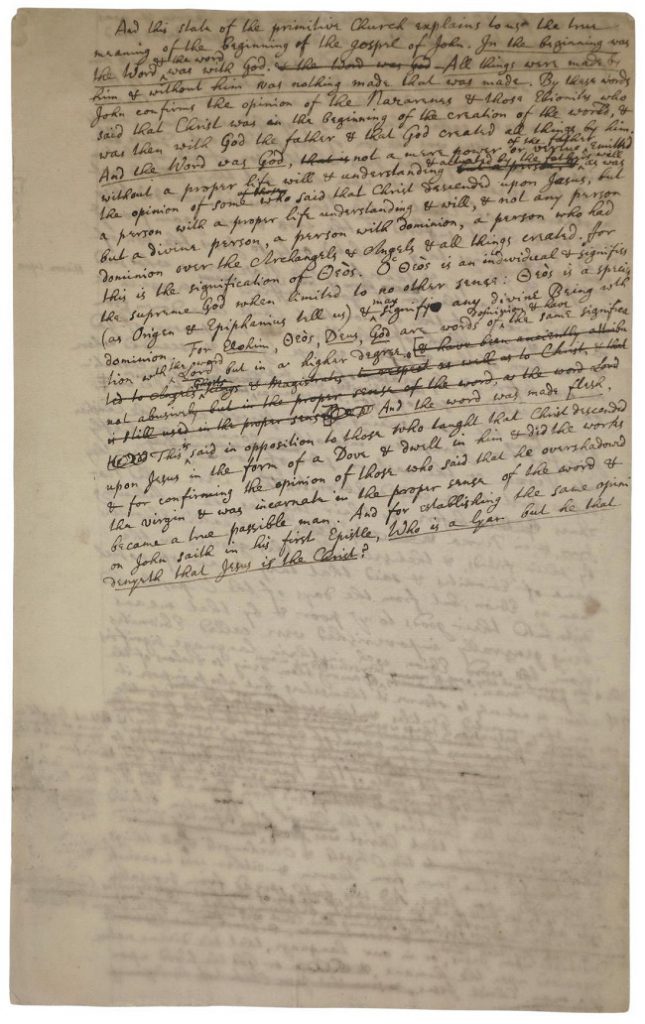 And this state of the primitive Church explains to us the true
meaning of the beginning of the gospel of John. In the beginning was
the Word & the word was with God. & the Word was God All things were made by
him & without him was nothing made that was made. By these words
John confirms the opinion of the Nazarenes & those Ebionites who
said that Christ was in the beginning of the creation of the world, &
was then with God the father & that God created all things by him.
And the Word was God, that is not a mere power or virtue of the father Emitted
without a proper life will & understanding & by the father as was well
the opinion of some of those who said that Christ descended upon Jesus, but
a person with a proper life understanding & will, & not any person
but a divine person, a person with dominion, a person who had
dominion over the Archangels & Angels & all things created. for
this is the signification of Θεὸς. Ὁ Θεὸς is an individual & signifies
the supreme God when limited to no other sense: Θεὸς is a species
(as Origen & Epiphanius tell us) & may signify any divine Being with
dominion. For Elohim, Θεὸς, Deus, God are words of Dominion & have the same significa
tion with the word Lord but in a higher degree, & have been anciently attribu
ted to Angels Kings & Magistrates in respect as well as to Christ, & that
not abusively but in the proper sense of the word, as the word Lord
is still used in the proper sense And the word was made flesh.
This is said in opposition to those who taught that Christ descended
upon Jesus in the form of a Dove & dwelt in him & did the works
& for confirming the opinion of those who said that he overshadowed
the virgin & was incarnate in the proper sense of the word &
became a true passible man. And for establishing the same opini
on John saith in his first Epistle, Who is a lyar but he that
denyeth that Jesus is the Christ?